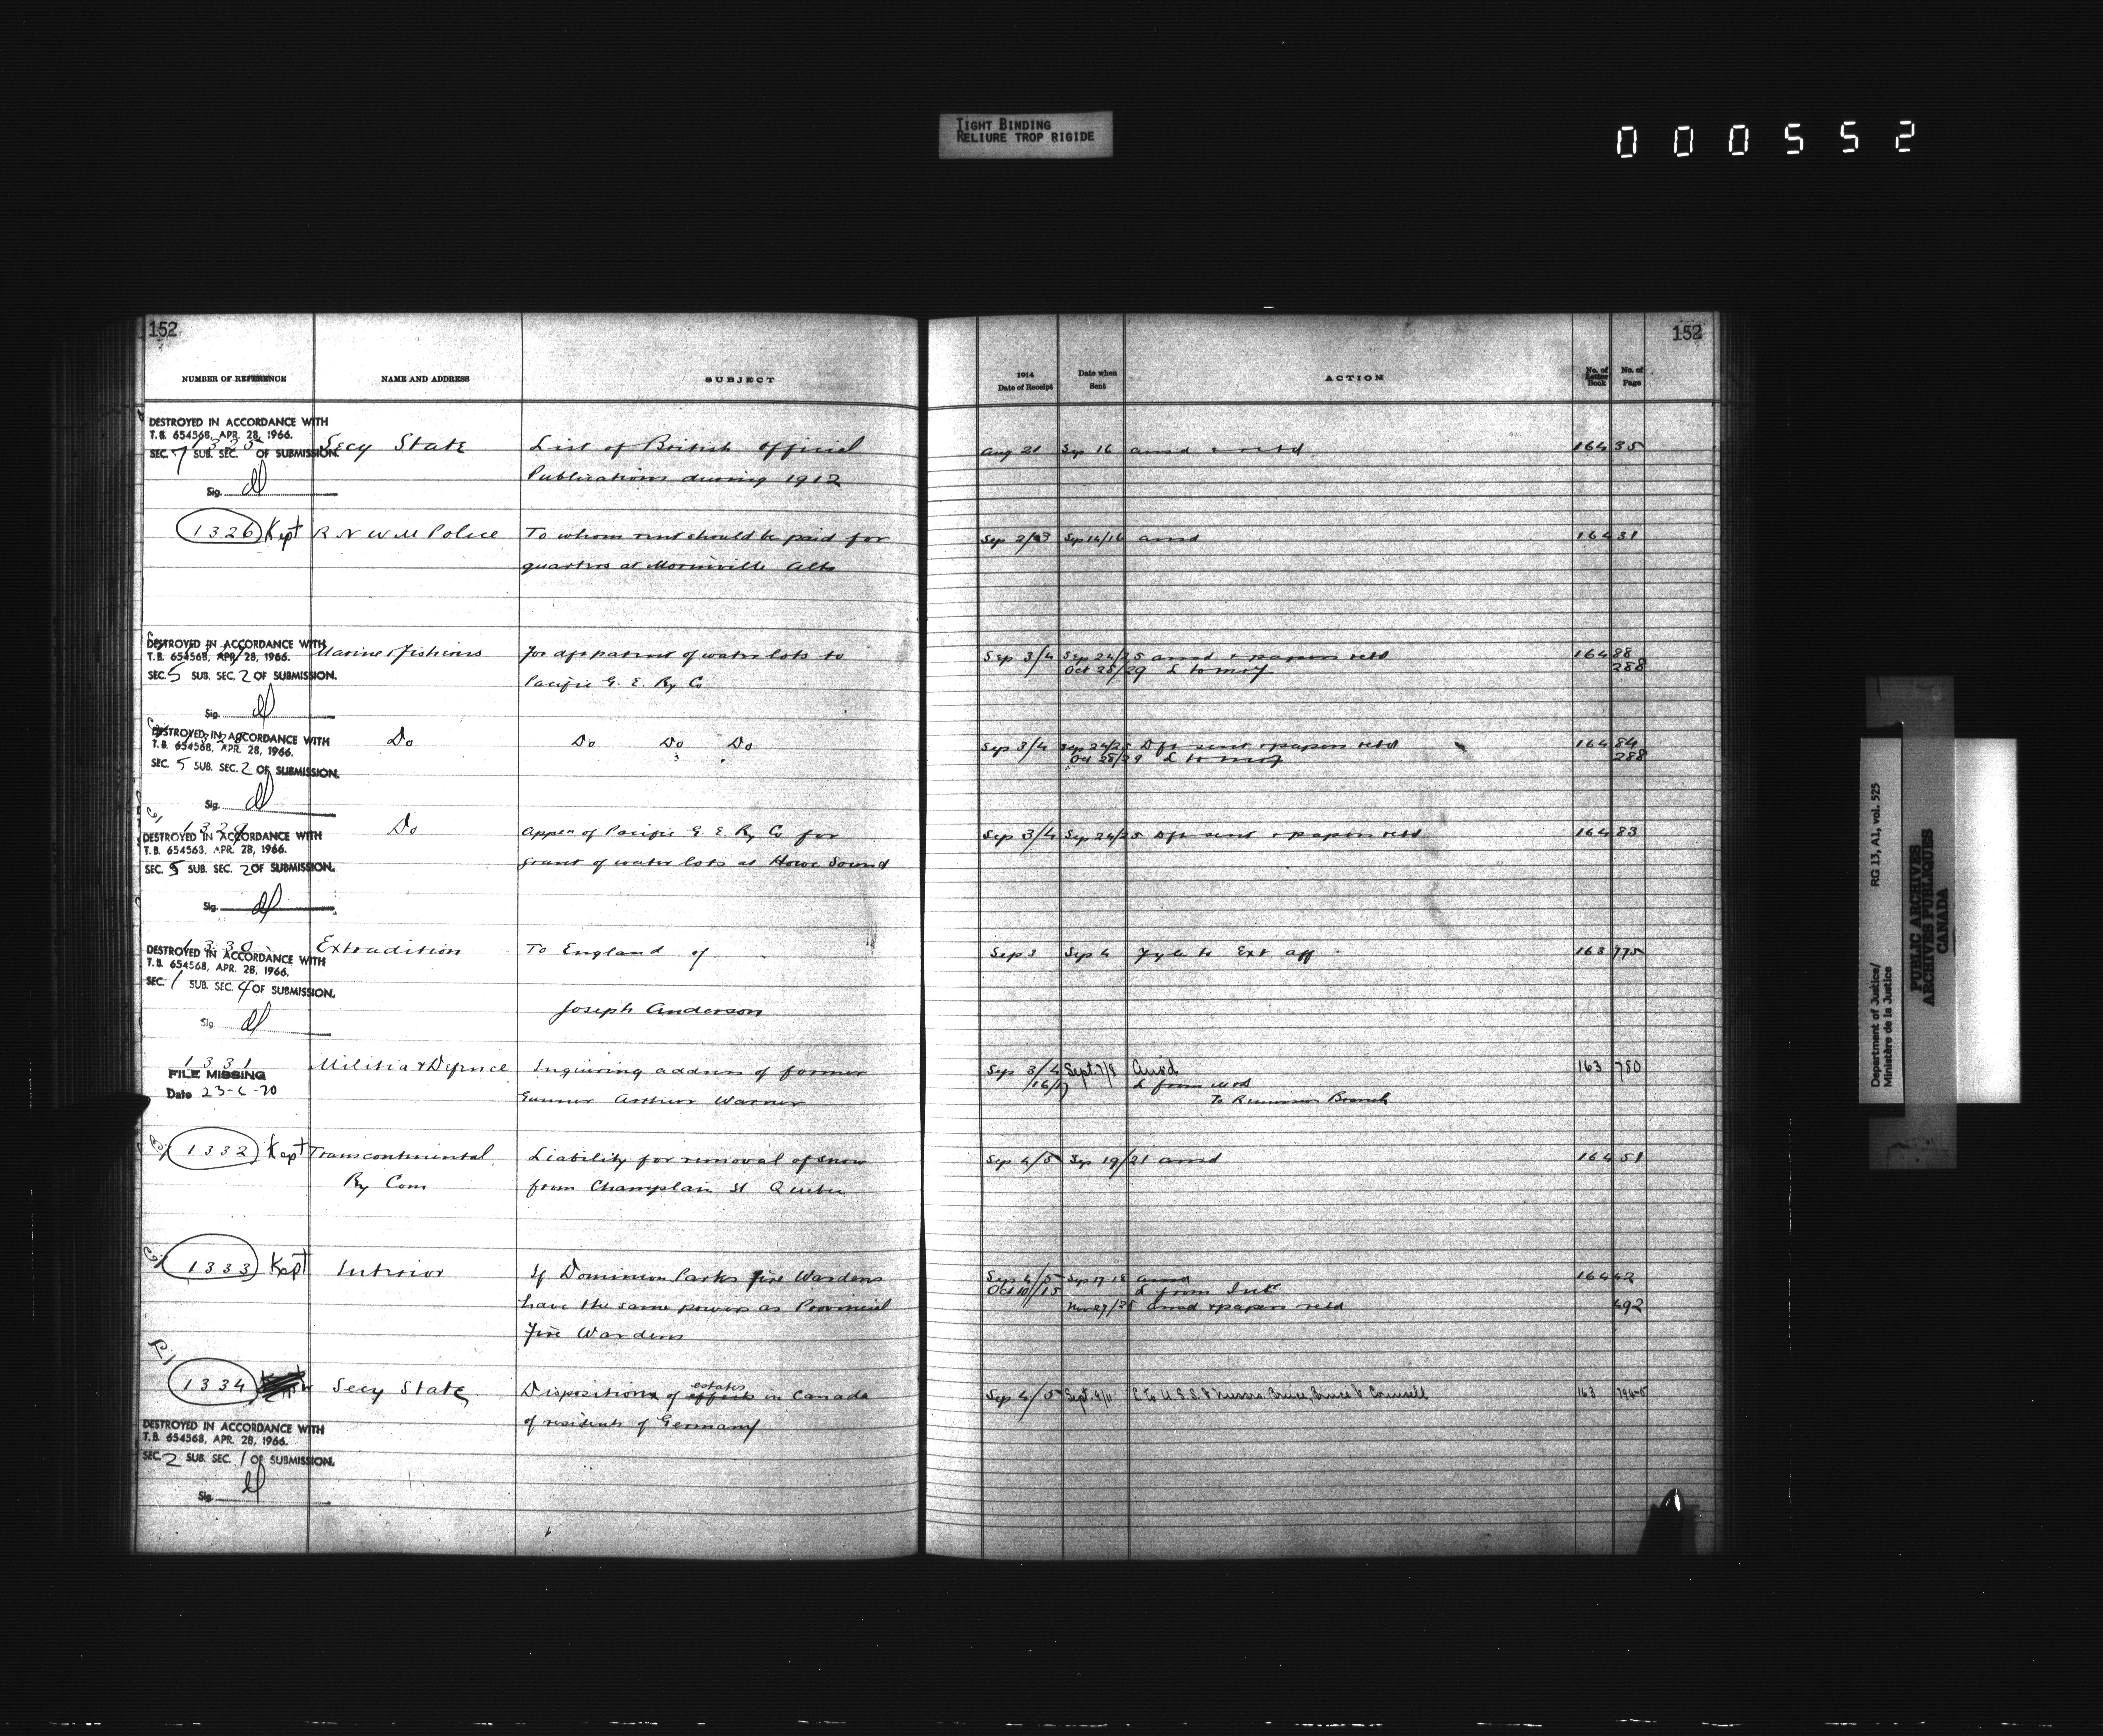 TIGHT BINDING
RELIURE TROP RIGIDE
000552
152
152
NUMBER OF REFERENCE NAME AND ADDRESS SUBJECT 1914 Date of Receipt Date when Sent ACTION No. of Letter Book No. of Page
DESTROYED IN ACCORDANCE WITH
T.B. 654568, APR. 28, 1966.
SEC. 7 SUB. SEC. OF SUBMISSION.
Sig.
1325 Secy State List of British Official Aug 21 Sep 16 ansd & retd 164 35
Publications during 1912
1326 Kept R N W M Police To whom rent should be paid for Sep 2/3 Sep 14/16 ansd 164 31
quarters at Morinville Alta
DESTROYED IN ACCORDANCE WITH
T.B. 654568, APR. 28, 1966.
SEC. 5 SUB. SEC. 2 OF SUBMISSION.
Sig.
Marine & Fisheries For dft patent of water lots to Sep 3/4 Sep 24/25 ansd & papers retd 164 88
Pacific G. E. Ry Co Oct 28/29 L to m of 288
DESTROYED IN ACCORDANCE WITH
T.B. 654568, APR. 28, 1966.
SEC. 5 SUB. SEC. 2 OF SUBMISSION.
Sig.
Do Do Do Do Sep 3/4 Sep 24/25 Dft sent & papers retd 164 84
Oct 28/29 L to m of 288
1329 Do Appcn of Pacific G. E Ry Co for Sep 3/4 Sep 24/25 Dft sent & papers retd 164 83
grant of water lots at Howe Sound
DESTROYED IN ACCORDANCE WITH
T.B. 654568, APR. 28, 1966.
SEC. 5 SUB. SEC. 2 OF SUBMISSION.
Sig.
1330 Extradition To England of Sep 3 Sep 4 Fyle to Ext aff 163 775
Joseph Anderson
DESTROYED IN ACCORDANCE WITH
T.B. 654568, APR. 28, 1966.
SEC. 1 SUB. SEC. 4 OF SUBMISSION.
Sig
1331 Militia & Defence Inquiring address of former Sep 3/4 Sept. 7/8 Ans'd 163 780
FILE MISSING
Date 23-6-70
Gunner Arthur Warner 16/17 L from M & D
To Remission Branch
1332 Kept Transcontinental Liability for removal of snow Sep 4/5 Sep 19/21 ansd 164 51
Ry Com from Champlain St Quebec
1333 Kept Interior If Dominion Parks Fire Wardens Sep 4/5 Sep 17 18 ansd 164 42
Oct 10/15 L from Intr
have the same powers as Provincial Nov 27/28 ansd & papers retd 492
Fire Wardens
1334 Secy State Disposition of estates in Canada Sep 4/5 Sept. 9/11 L to U.S.S. & Messrs. Bruce, Bruce & Counsell 163 794-5
of residents of Germany
DESTROYED IN ACCORDANCE WITH
T.B. 654568, APR. 28, 1966.
SEC. 2 SUB. SEC. 1 OF SUBMISSION.
Sig.
Department of Justice/ RG 13, A1, vol. 525
Ministère de la Justice
PUBLIC ARCHIVES
ARCHIVES PUBLIQUES
CANADA